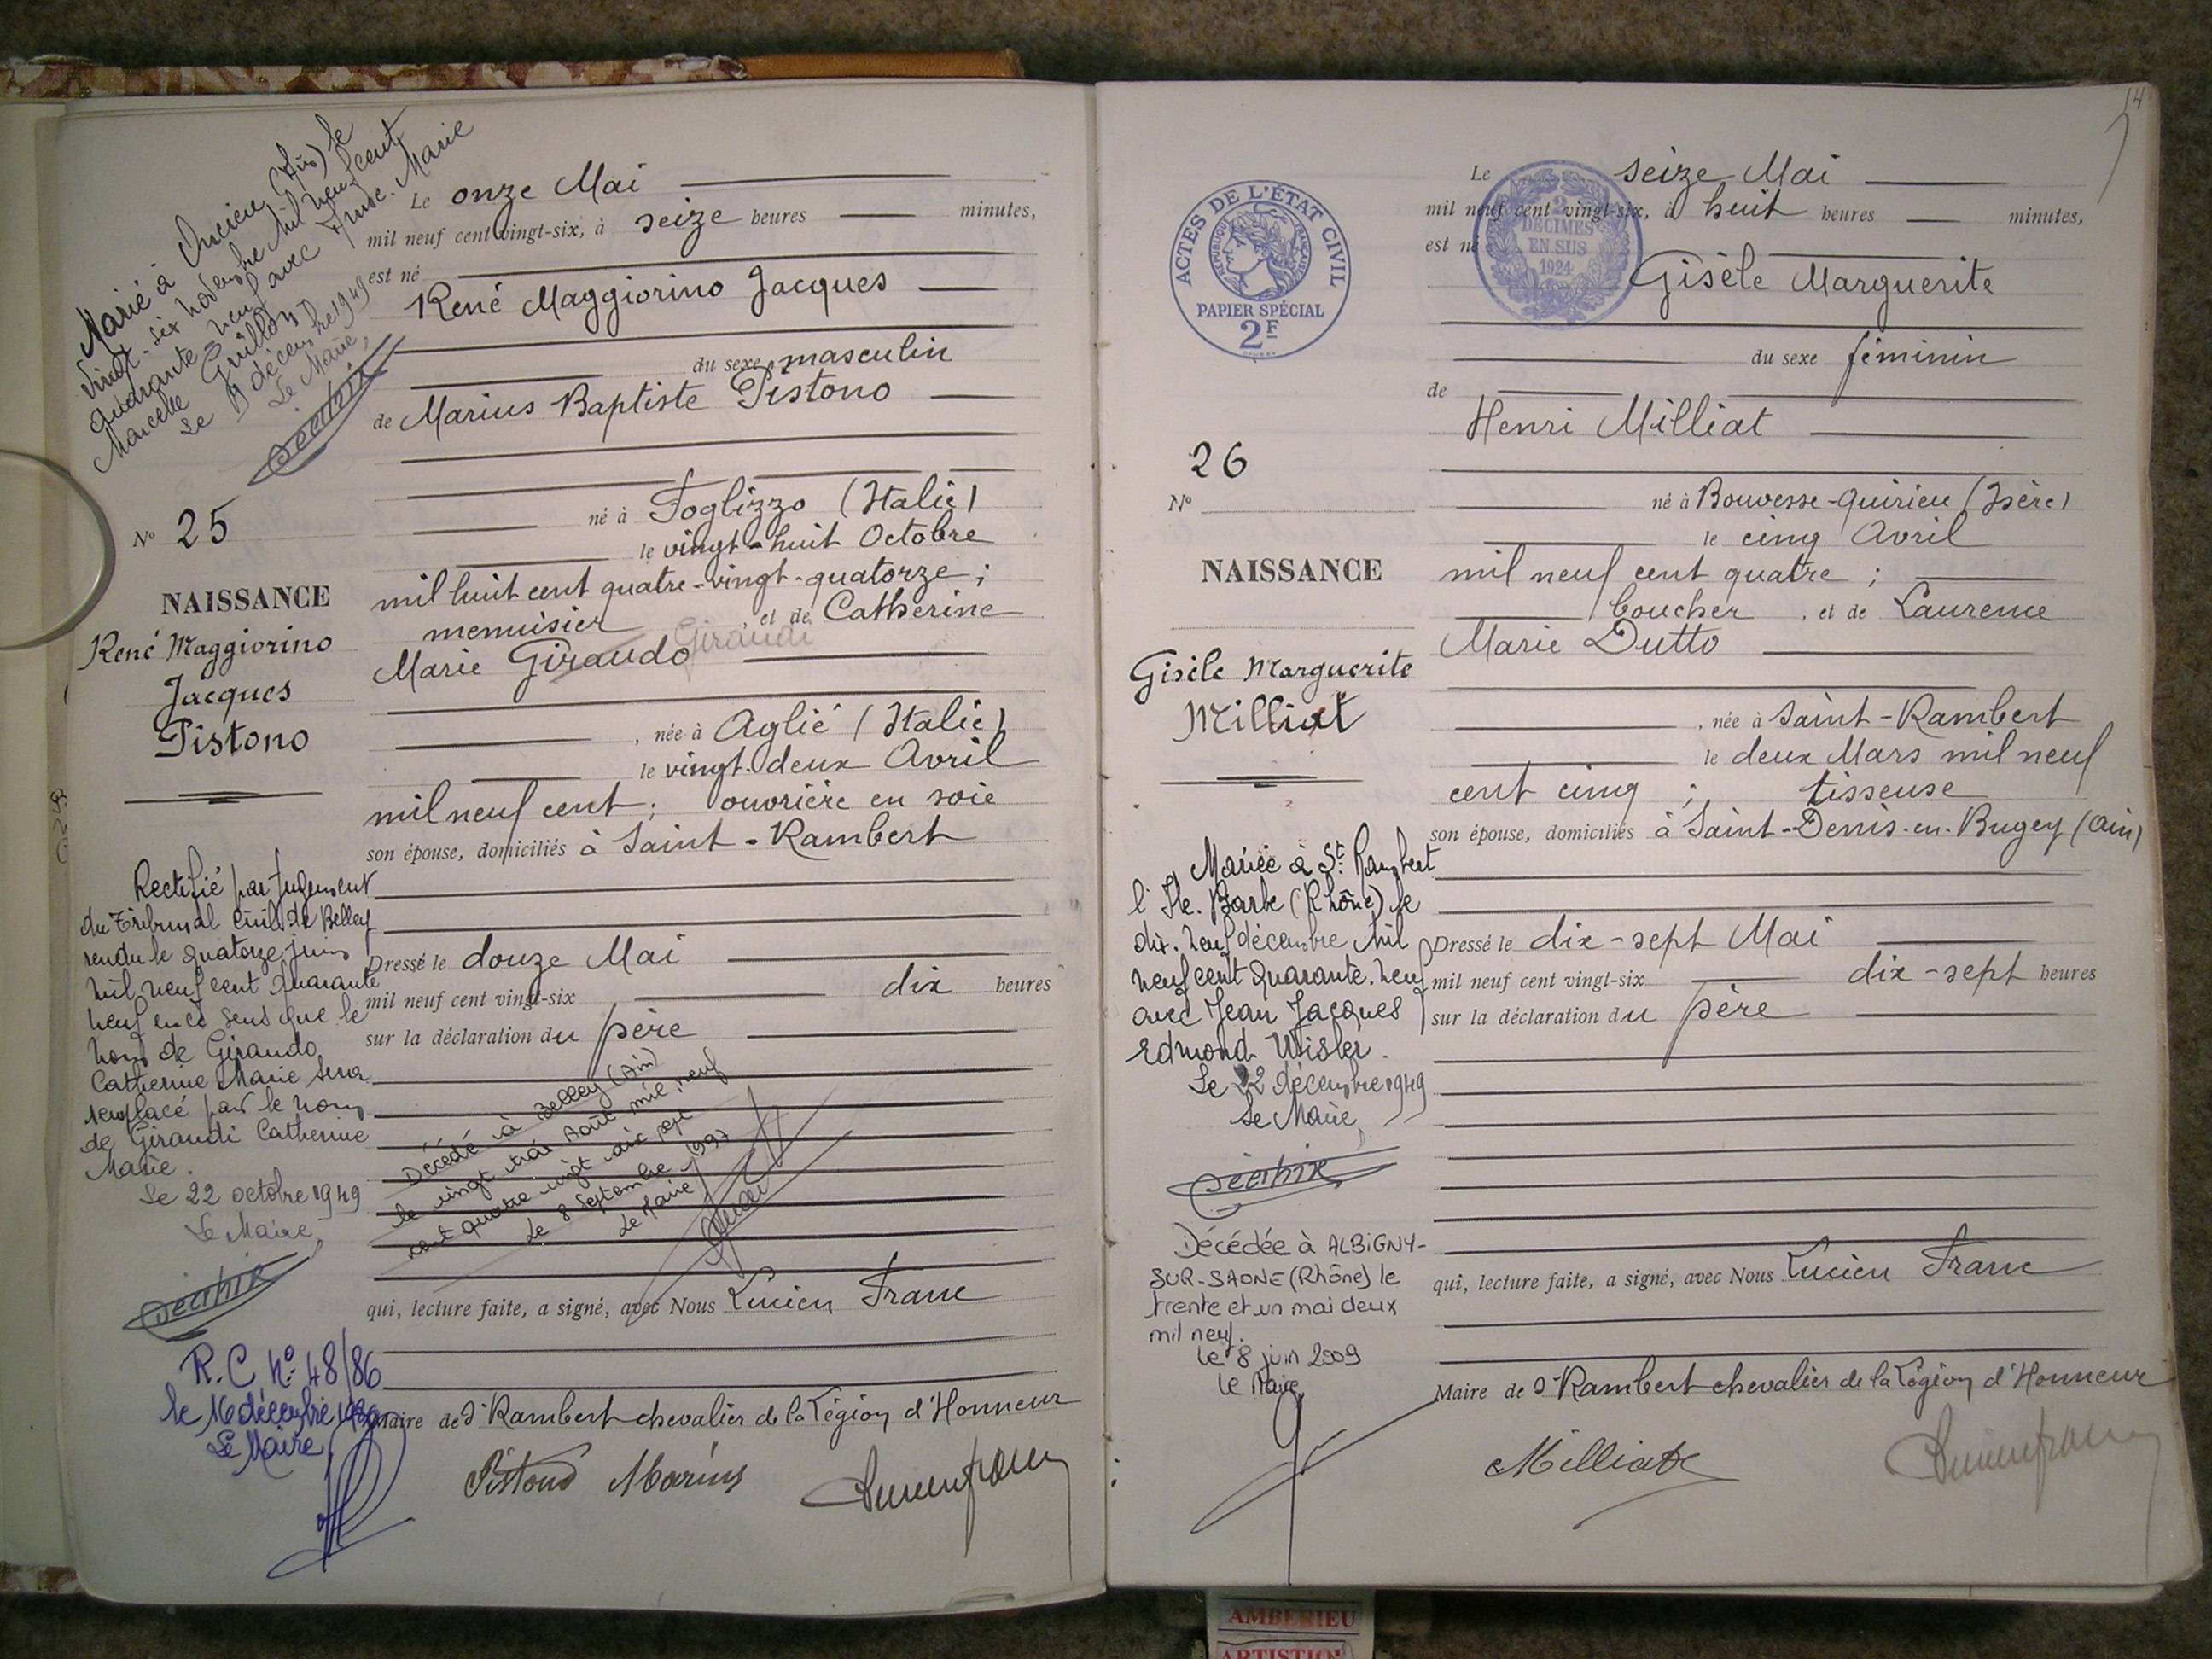 Marié à Oncieu (Ain) le
vingt-six novembre mil neuf cent
quarante neuf avec Anne-Marie
Marcelle Guillon
Le 9 décembre 1949
Le Maire,
Nº 25
NAISSANCE
René Maggiorino
Jacques
Pistono
Rectifié par jugement
du Tribunal civil de Belley
rendu le quatorze juin
mil neuf cent quarante
neuf en ce sens que le
nom de Giraudo
Catherine Marie sera
remplacé par le nom
de Giraudi Catherine
Marie.
Le 22 octobre 1949
Le Maire,
R.C Nº 48/86
le 16 décembre
Le Maire
Le onze Mai
mil neuf cent vingt-six, à seize heures minutes,
est né
René Maggiorino Jacques
du sexe masculin
de Marius Baptiste Pistono
né à Foglizzo (Italie)
le vingt-huit Octobre
mil huit cent quatre-vingt-quatorze ;
menuisier , et de Catherine
Marie Giraudo Giraudi
, née à Aglié (Italie)
le vingt-deux Avril
mil neuf cent ; ouvrière en soie
son épouse, domiciliés à Saint-Rambert
Dressé le douze Mai
mil neuf cent vingt-six dix heures
sur la déclaration du père
Décédé à Belley (Ain)
le vingt trois Août mil neuf
cent quatre vingt dix sept
Le 8 Septembre 1997
Le Maire
qui, lecture faite, a signé, avec Nous Lucien Franc
Maire de St Rambert chevalier de la Légion d'Honneur
Pistono Marius
14
ACTES DE L'ÉTAT CIVIL
RÉPUBLIQUE FRANÇAISE
PAPIER SPÉCIAL
2F
2
DÉCIMES
EN SUS
1924
26
Nº
NAISSANCE
Gisèle Marguerite
Milliat
Mariée à St Rambert
l'Ile-Barbe (Rhône) le
dix-neuf décembre mil
neuf cent quarante-neuf
avec Jean Jacques
Edmond Wisler.
Le 22 décembre 1949
Le Maire,
Décédée à ALBIGNY-
SUR-SAONE (Rhône) le
trente et un mai deux
mil neuf.
le 8 juin 2009
Le Maire,
Le seize Mai
mil neuf cent vingt-six, à huit heures minutes,
est né
Gisèle Marguerite
du sexe féminin
de
Henri Milliat
né à Bouvesse-Quirieu (Isère)
le cinq Avril
mil neuf cent quatre ;
boucher , et de Laurence
Marie Dutto
, née à Saint-Rambert
le deux Mars mil neuf
cent cinq ; tisseuse
son épouse, domiciliés à Saint-Denis-en-Bugey (Ain)
Dressé le dix-sept Mai
mil neuf cent vingt-six dix-sept heures
sur la déclaration du père
qui, lecture faite, a signé, avec Nous Lucien Franc
Maire de St Rambert chevalier de la Légion d'Honneur
Milliat
AMBERIEU